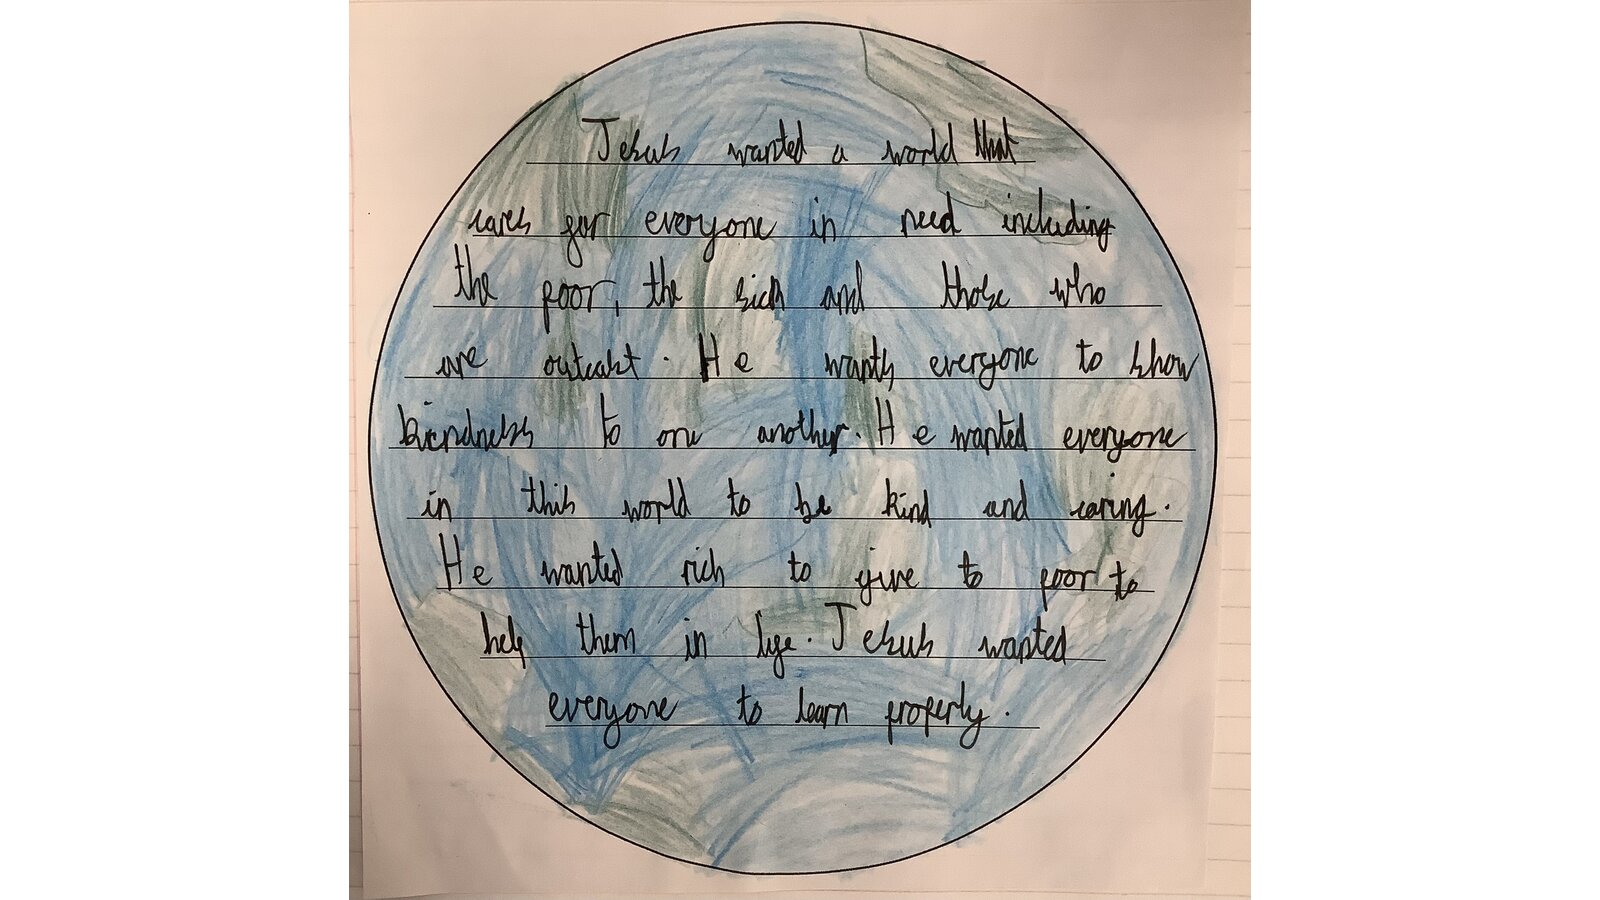 Jesus wanted a world that
cares for everyone in need including
the poor, the sick and those who
are outcast. He wants everyone to show
kiendness to one another. He wanted everyone
in this world to be kind and caring.
He wanted rich to give to poor to
help them in life. Jesus wanted
everyone to learn properly.